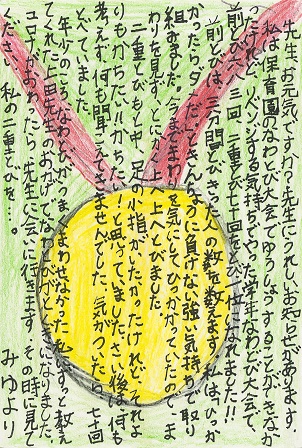 先生、お元気ですか?先生にうれしいお知らせがあります。
私は保育園のなわとび大会でゆうしょうすることができな
かったけれど、リベンジする気持ちでやった学年なわとび大会で、
前とび六八三回、二重とび七十回とび、一位になれました!!
前とびは、三分間とびきった人の数を数えます。私は、ひっか
かったら、に負けない強い気持ちで取り
組みました。今までまわりを気にしてひっかかっていたので、ま
わりを見ず、上へとびました。
二重とびもと中、足の小指がいたかったけれど、それよ
りもかちたい!!かちたい!と思っていました。さい後は、何も
考えず、何も聞こえてきませんでした。気がついたら、七十回
とべていました。
年少のころ、なわとびがうまくまわせなかった私に、ずっと教え
てくれた上田先生のおかげで、なわとびがとくいになりました。
コロナがおわったら、先生に会いに行きます。その時に見てく
ださい。私の二重とびを…。
みゆより